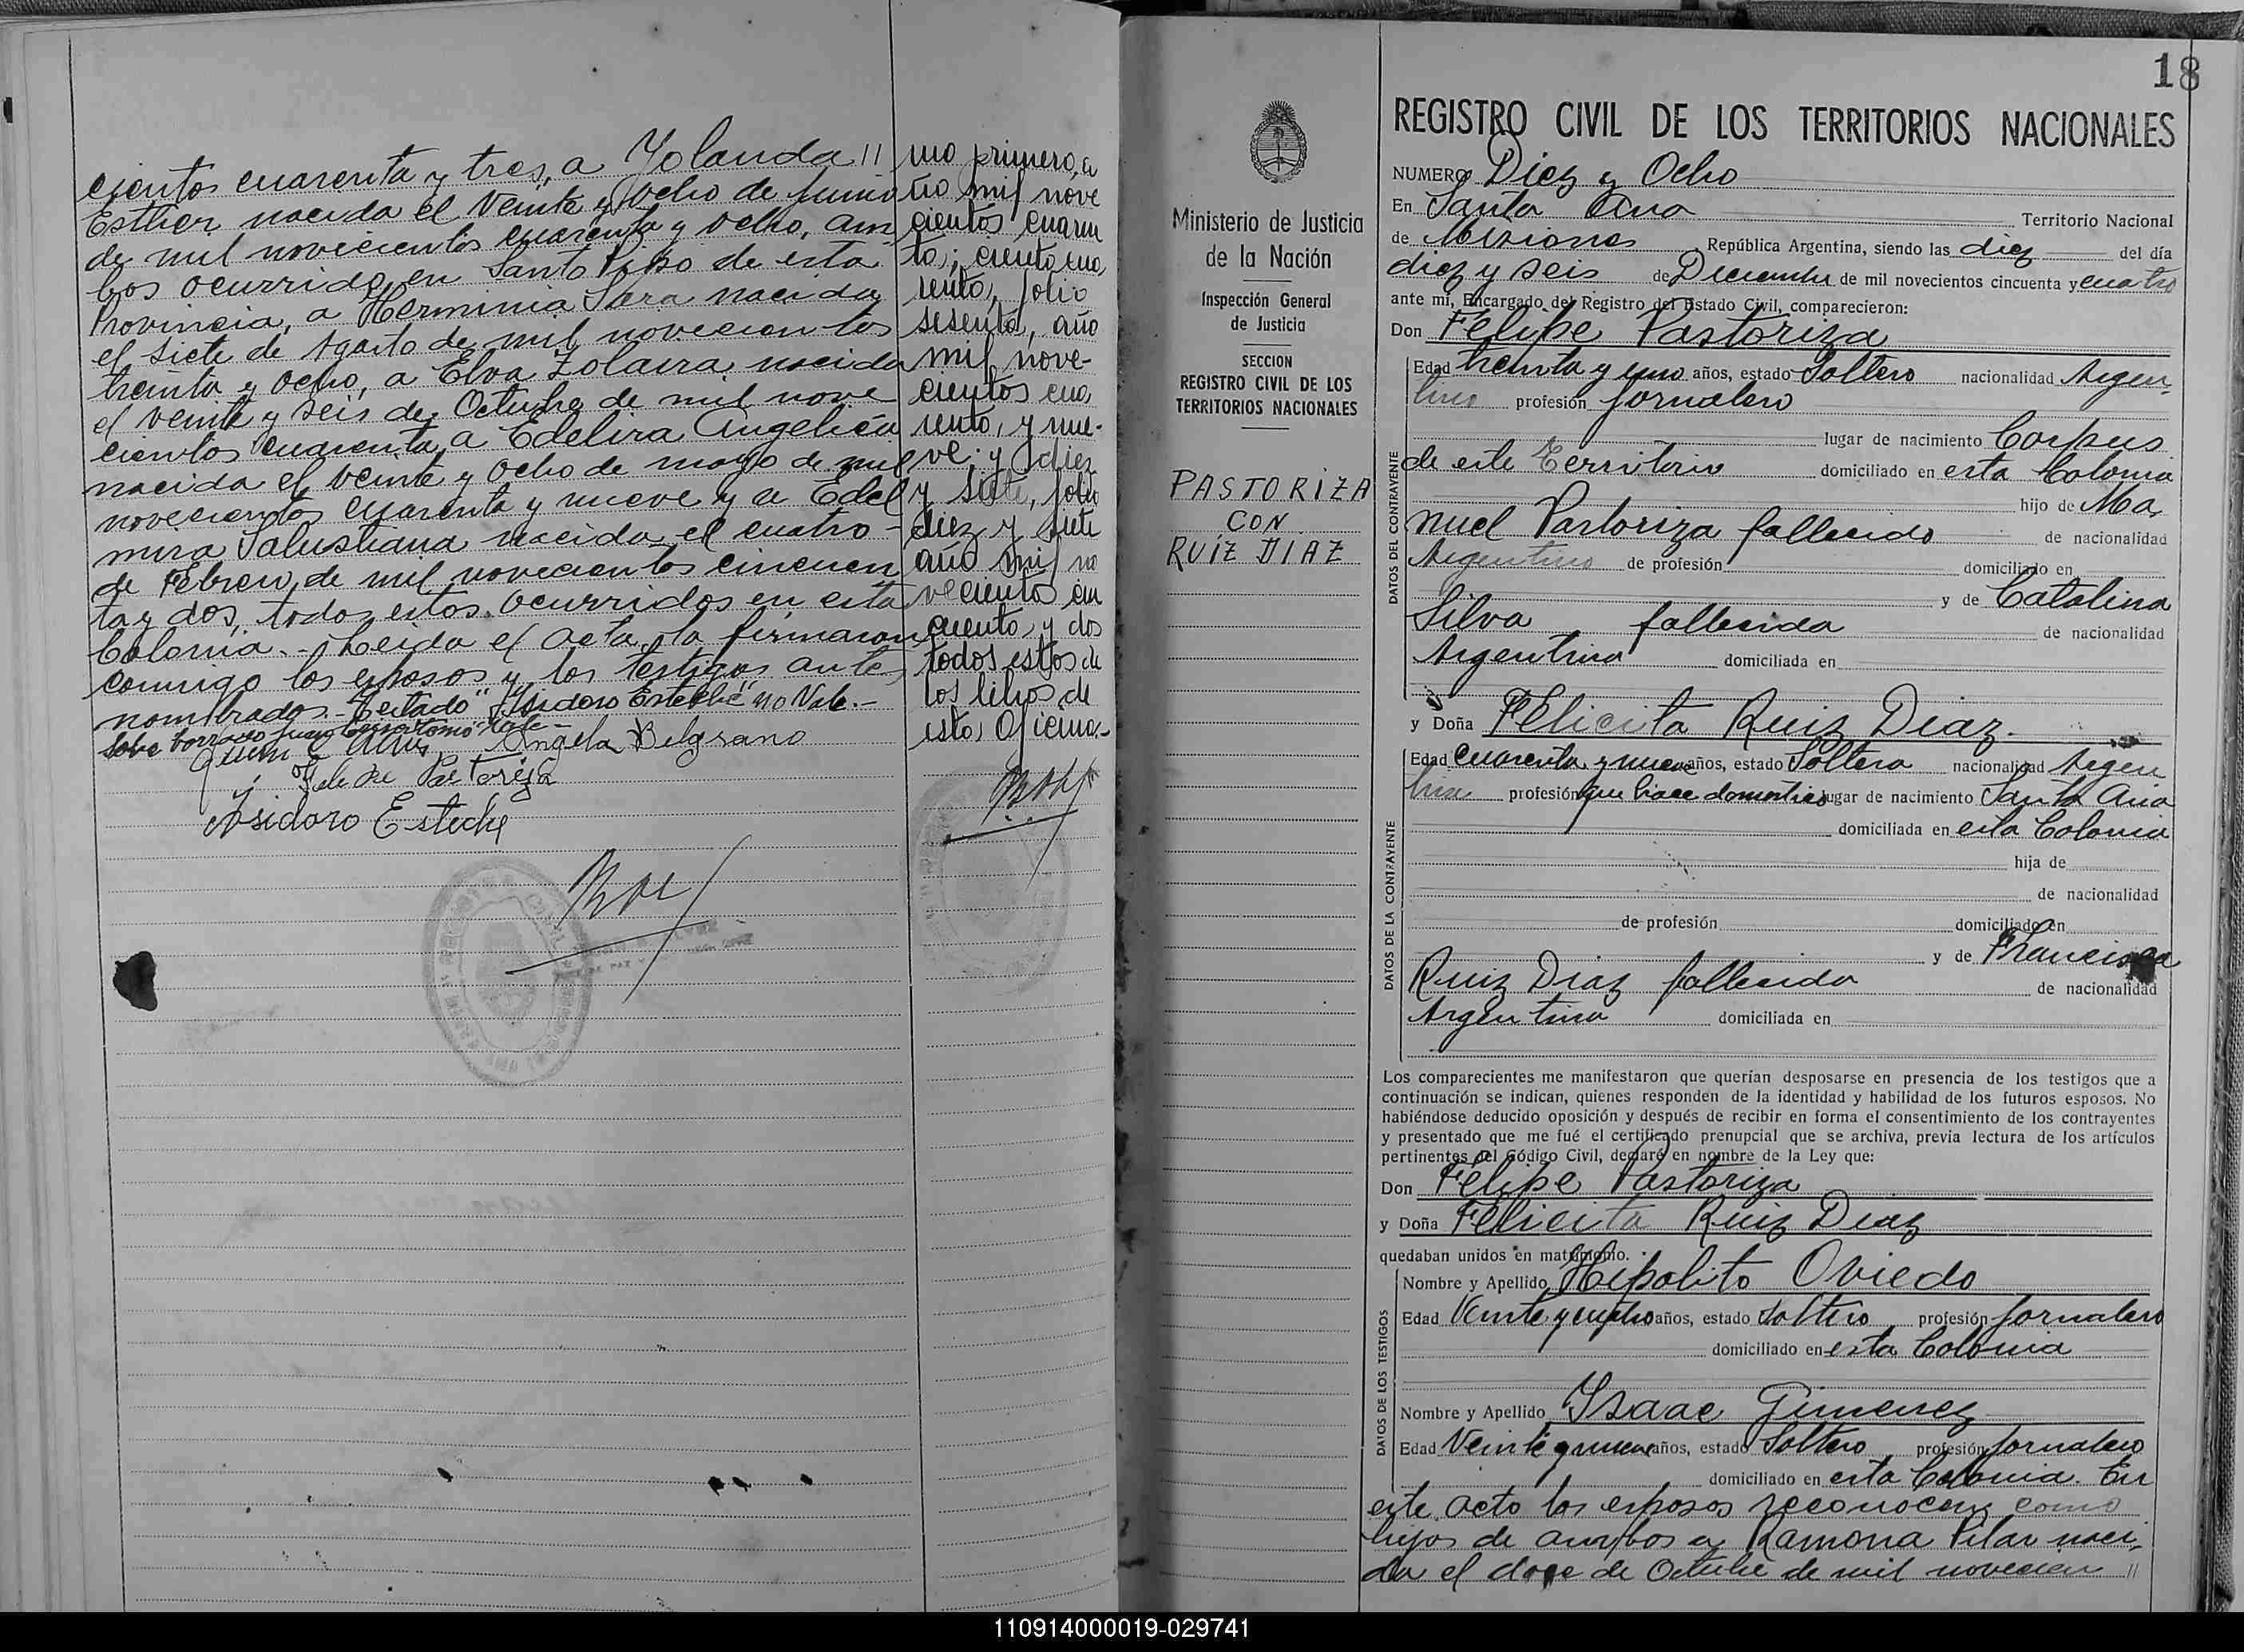 cientos cuarenta y tres, a Yolanda //
Esther nacida el veinte y ocho de Junio
de mil novecientos cuarenta y ocho, am
bos ocurrido en Santo Pipo de esta
Provincia, a Herminia Sara nacida
el siete de Agosto de mil novecientos
treinta y ocho, a Elva Zolaira nacida
el veinte y seis de Octubre de mil nove
cientos cuarenta, a Edelira Angelica
nacida el veinte y ocho de mayo de mil
novecientos cuarenta y nueve y a Edel
mira Salustiana nacida el cuatro -
de Febrero de mil novecientos cincuen
ta y dos, todos estos ocurridos en esta
Colonia. - Leida el acta, la firmaron
conmigo los esposos y los testigos antes
nombrados. - Testado "Isidoro Esteche" no Vale. -
Sobre borrado
Angela Belgrano
Felipe Pastoriza
Isidoro Esteche
mo primero, a
ño mil nove
cientos cuaren
ta; ciento cua
renta, folio
sesenta, año
mil nove-
cientos cua
renta, y nue-
ve; y diez
y siete, folio
diez y siete
año mil no
vecientos cin
cuenta y dos
todos estos de
los libros de
esta Oficina.-
18
Ministerio de Justicia
de la Nación
Inspección General
de Justicia
SECCION
REGISTRO CIVIL DE LOS
TERRITORIOS NACIONALES
PASTORIZA
CON
RUÍZ DÍAZ
REGISTRO CIVIL DE LOS TERRITORIOS NACIONALES
NUMERO Diez y Ocho
En Santa Ana Territorio Nacional
de Misiones República Argentina, siendo las diez del día
diez y seis de Diciembre de mil novecientos cincuenta y cuatro
ante mí, Encargado del Registro del Estado Civil, comparecieron:
Don Felipe Pastoriza
Edad treinta y uno años, estado Soltero nacionalidad Argen-
tino profesión jornalero
lugar de nacimiento Corpus
de este Territorio domiciliado en esta Colonia
hijo de Ma,
nuel Pastoriza fallecido de nacionalidad
Argentino de profesión domiciliado en
y de Catalina
Silva fallecida de nacionalidad
Argentina domiciliada en
y Doña Felicita Ruiz Diaz.
Edad cuarenta y nueve años, estado Soltera nacionalidad Argen
tina profesión que hace domesticos lugar de nacimiento Santa Ana
domiciliada en esta Colonia
hija de
de nacionalidad
de profesión domiciliado en
y de Francisca
Ruiz Diaz fallecida de nacionalidad
Argentina domiciliada en
DATOS DEL CONTRAYENTE
DATOS DE LA CONTRAYENTE
Los comparecientes me manifestaron que querían desposarse en presencia de los testigos que a
continuación se indican, quienes responden de la identidad y habilidad de los futuros esposos. No
habiéndose deducido oposición y después de recibir en forma el consentimiento de los contrayentes
y presentado que me fué el certificado prenupcial que se archiva, previa lectura de los artículos
pertinentes del Código Civil, declaré en nombre de la Ley que:
Don Felipe Pastoriza
y Doña Felicita Ruiz Diaz
quedaban unidos en matrimonio.
Nombre y Apellido Hipolito Oviedo
Edad Veinte y cuatro años, estado Soltero profesión jornalero
domiciliado en esta Colonia
Nombre y Apellido Isaac Gimenez
Edad Veinte y nueve años, estado Soltero profesión jornalero
domiciliado en esta Colonia. En
DATOS DE LOS TESTIGOS
este acto los esposos reconocen como
hijos de ambos a Ramona Pilar naci,
da el doce de Octubre de mil novecien //
110914000019-029741